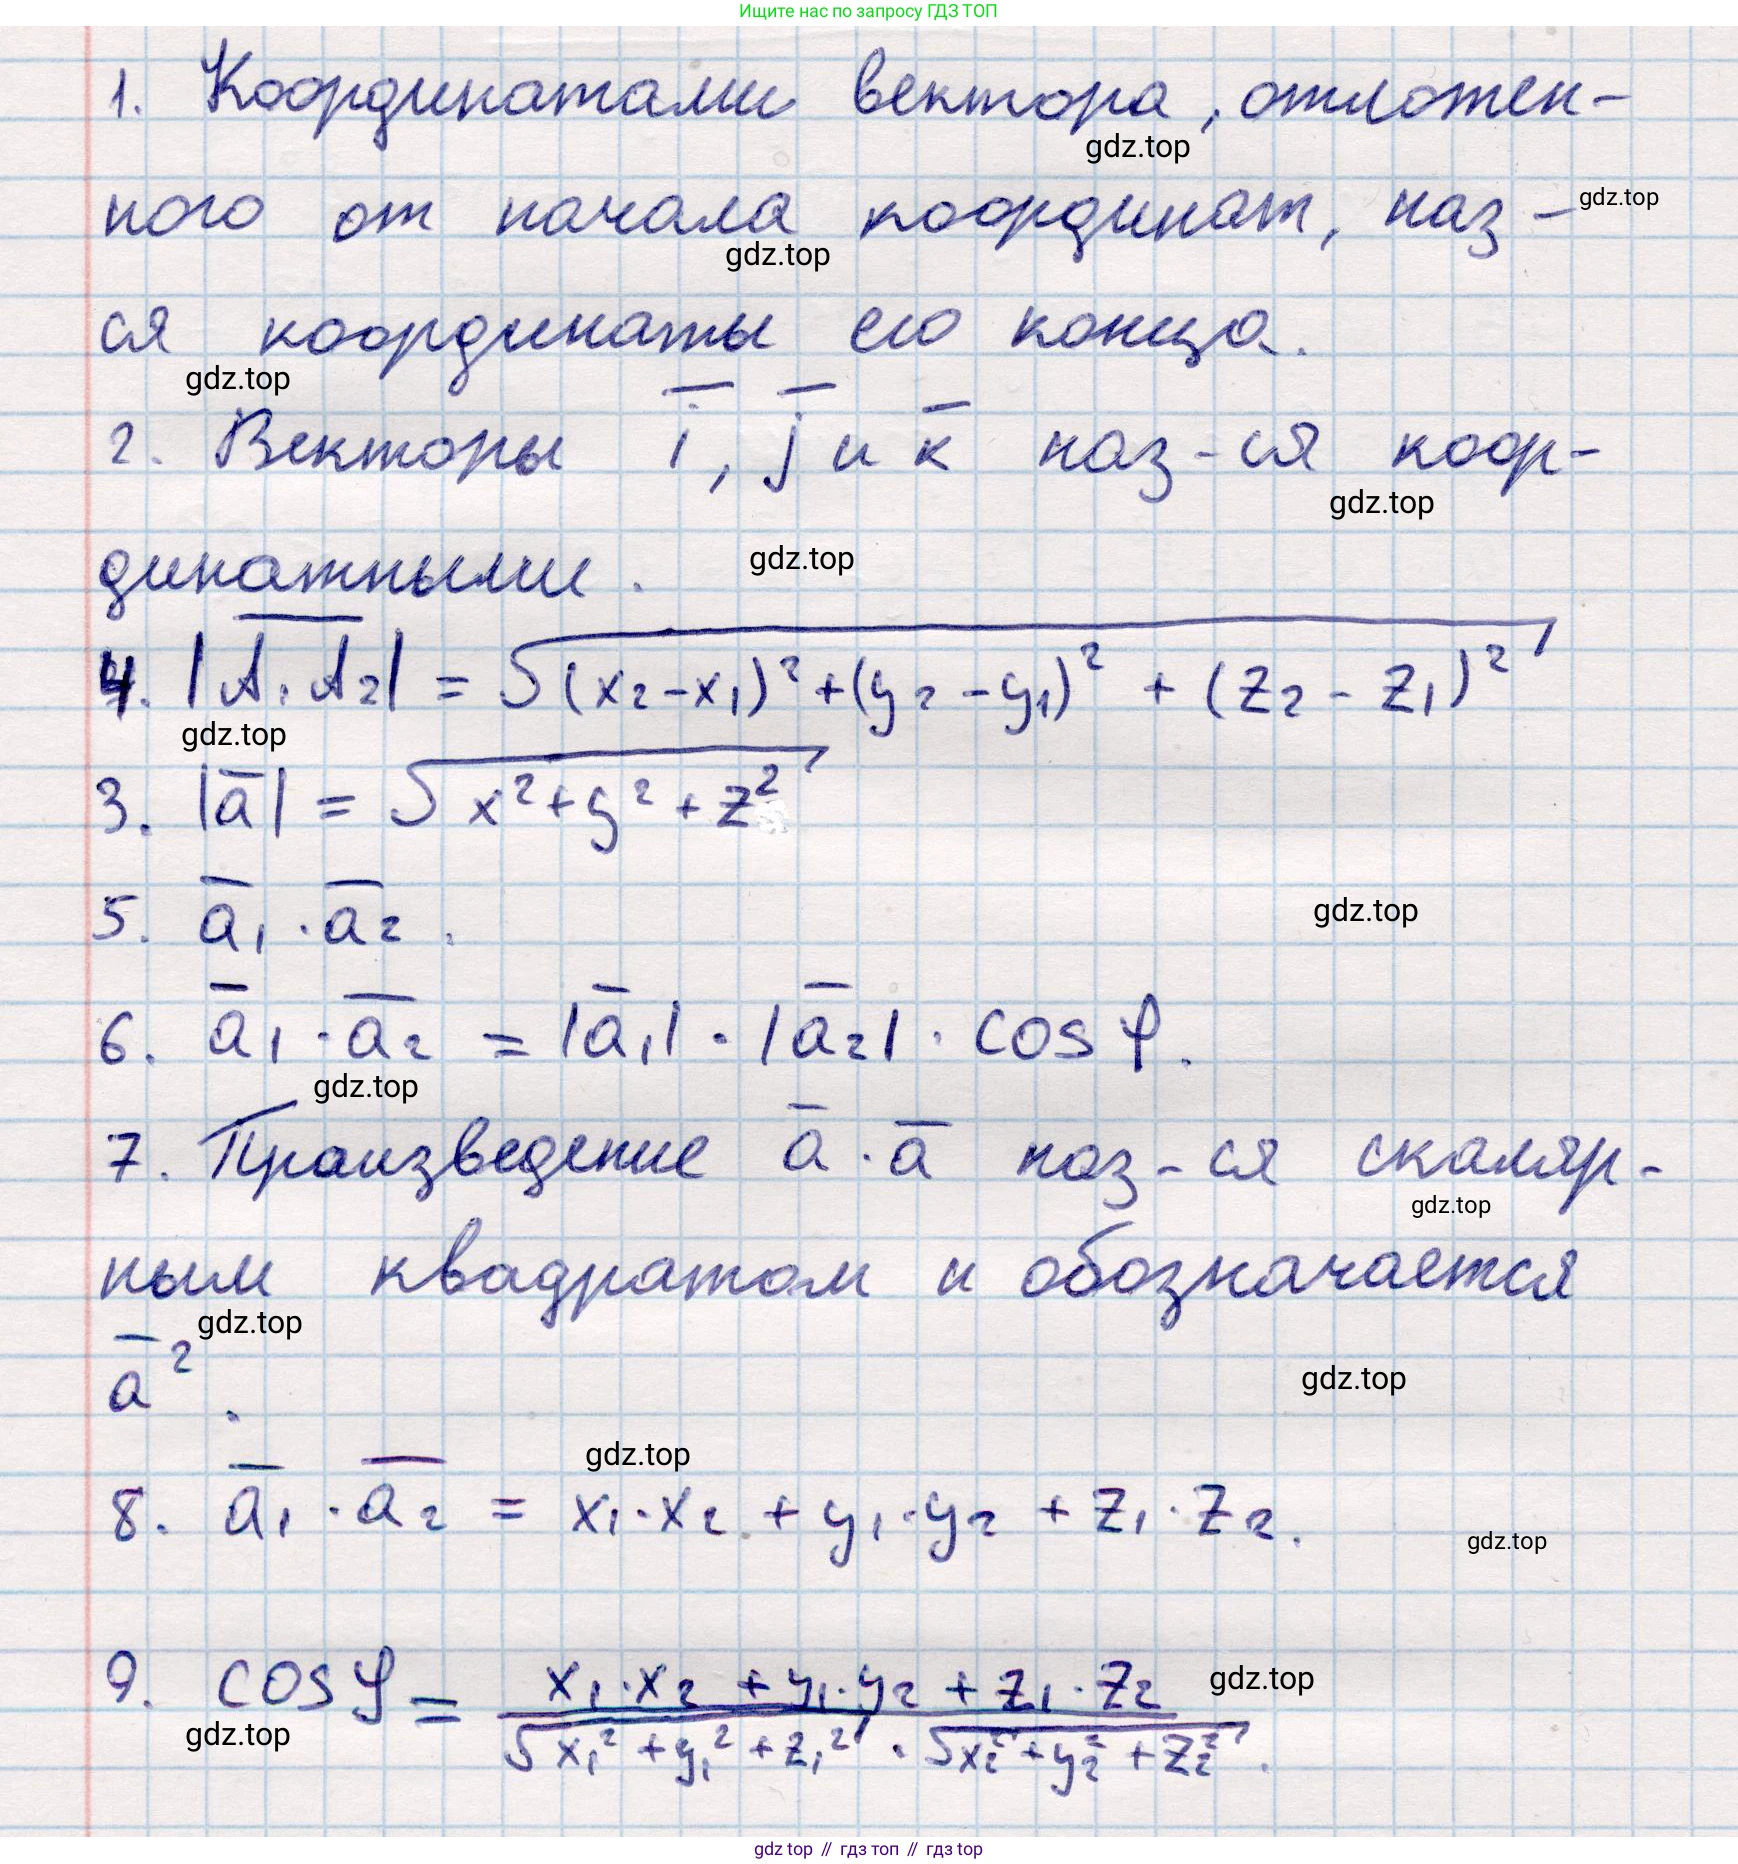 Ищите нас по запросу ГДЗ ТОП
1. Координатами вектора, отложен-
gdz.top
ного от начала координат, наз-
gdz.top
gdz.top
ся координаты его конца.
gdz.top
2. Векторы i̅, j̅ и k̅ наз-ся коор-
gdz.top
динатными.
gdz.top
4. |A̅₁A̅₂| = √((x₂-x₁)² + (y₂-y₁)² + (z₂-z₁)²)
gdz.top
3. |a̅| = √(x² + y² + z²)
5. a̅₁ · a̅₂.
gdz.top
6. a̅₁ · a̅₂ = |a̅₁| · |a̅₂| · cos φ.
gdz.top
7. Произведение a̅ · a̅ наз-ся скаляр-
gdz.top
ным квадратом и обозначается
gdz.top
a̅².
gdz.top
gdz.top
8. a̅₁ · a̅₂ = x₁·x₂ + y₁·y₂ + z₁·z₂.
gdz.top
9. cos φ = (x₁·x₂ + y₁·y₂ + z₁·z₂) / (√(x₁² + y₁² + z₁²) · √(x₂² + y₂² + z₂²)).
gdz.top
gdz.top
gdz top // гдз топ // гдз top